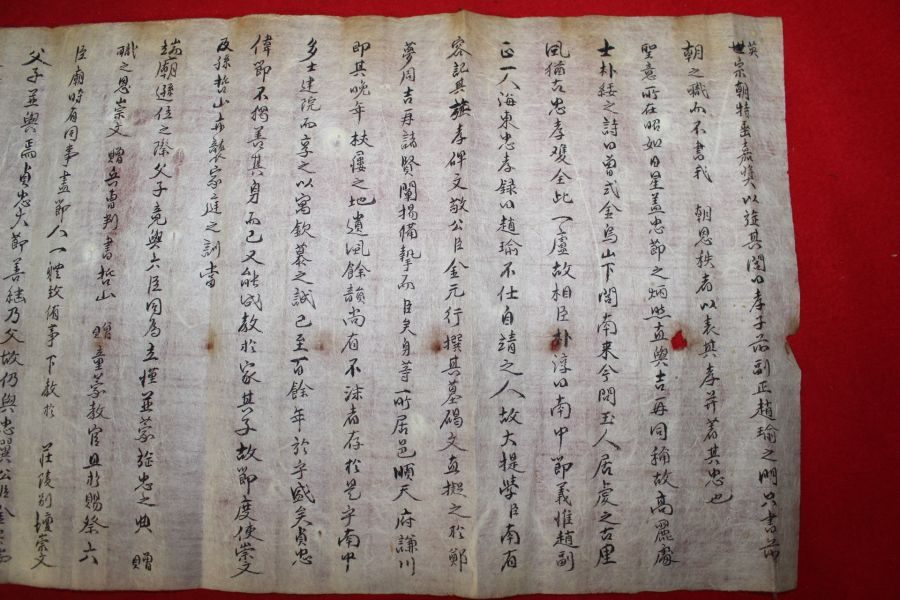 英
世宗朝特垂嘉奬以旌其閭曰孝子前副正趙瑜之閭只書前
朝之職而不書我 朝恩秩者以表其孝并著其忠也
聖意所在昭如日星盖忠節之炳煥直與吉再同稱故高麗處
士朴緌之詩曰曾式金烏山下閭南来今閱玉人居處之古里
風猶古忠孝雙全此一廬故相臣朴淳曰南中節義惟趙副
正一人海東忠孝錄曰趙瑜不仕自靖之人故大提學臣南有
容記其旌孝碑文敬公臣金元行撰其墓碣文直擬之於鄭
夢周吉再諸賢闡揚備摯而臣矣身等所居邑順天府謙川
即其晩年杖屨之地遺風餘韻尚有不沫者存於是乎南中
多士建院而享之以寓欽慕之誠已至百餘年於乎盛矣貞忠
偉節不獨善其身而已又能成教於家其子故節度使崇文
及孫哲山亦襲家庭之訓當
端廟遜位之際父子竟與六臣同爲立殣並蒙旌忠之典 贈
職之恩崇文 贈兵曹判書哲山 贈童蒙教官且於賜祭六
臣廟時有同事盡節人一體致侑事下教於 莊陵別壇崇文
父子並與焉貞忠大節善继乃父故仍與忠翼公臣